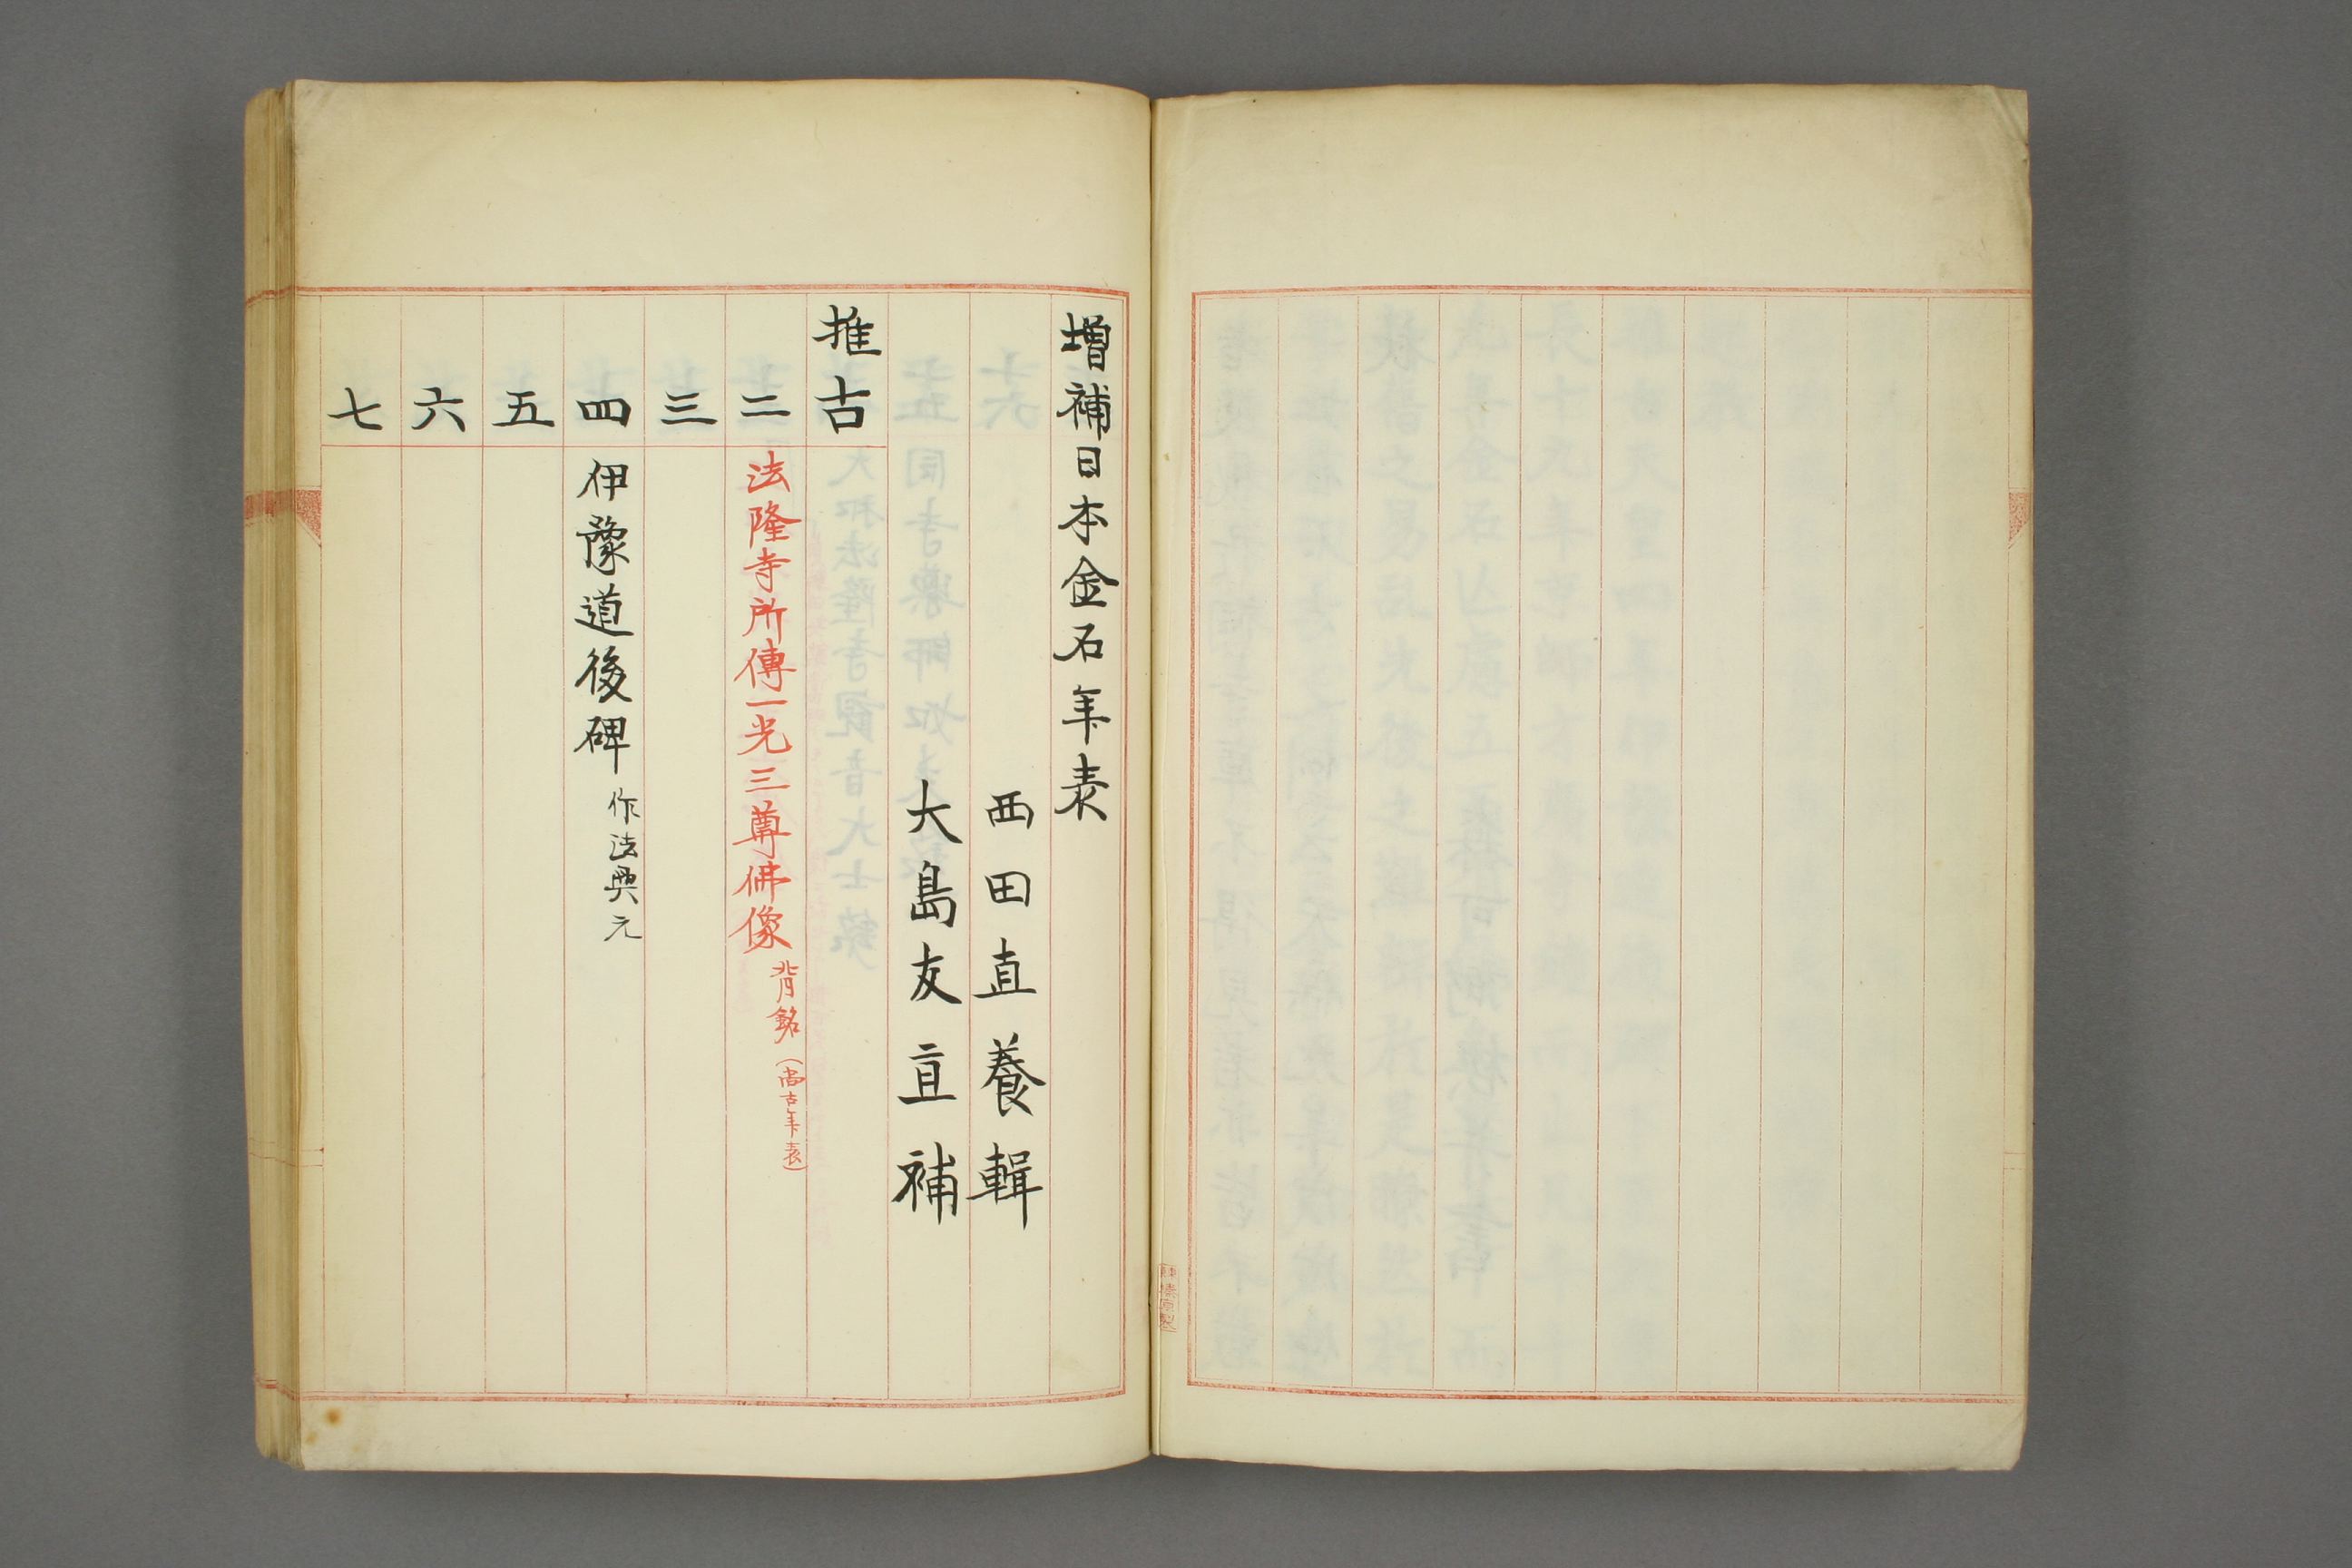 増補日本金石年表
西田直養輯
大島友直補
推古
二 法隆寺所傳一光三尊佛像 背銘（尚古年表）
三
四 伊豫道後碑 作法興元
五
六
七